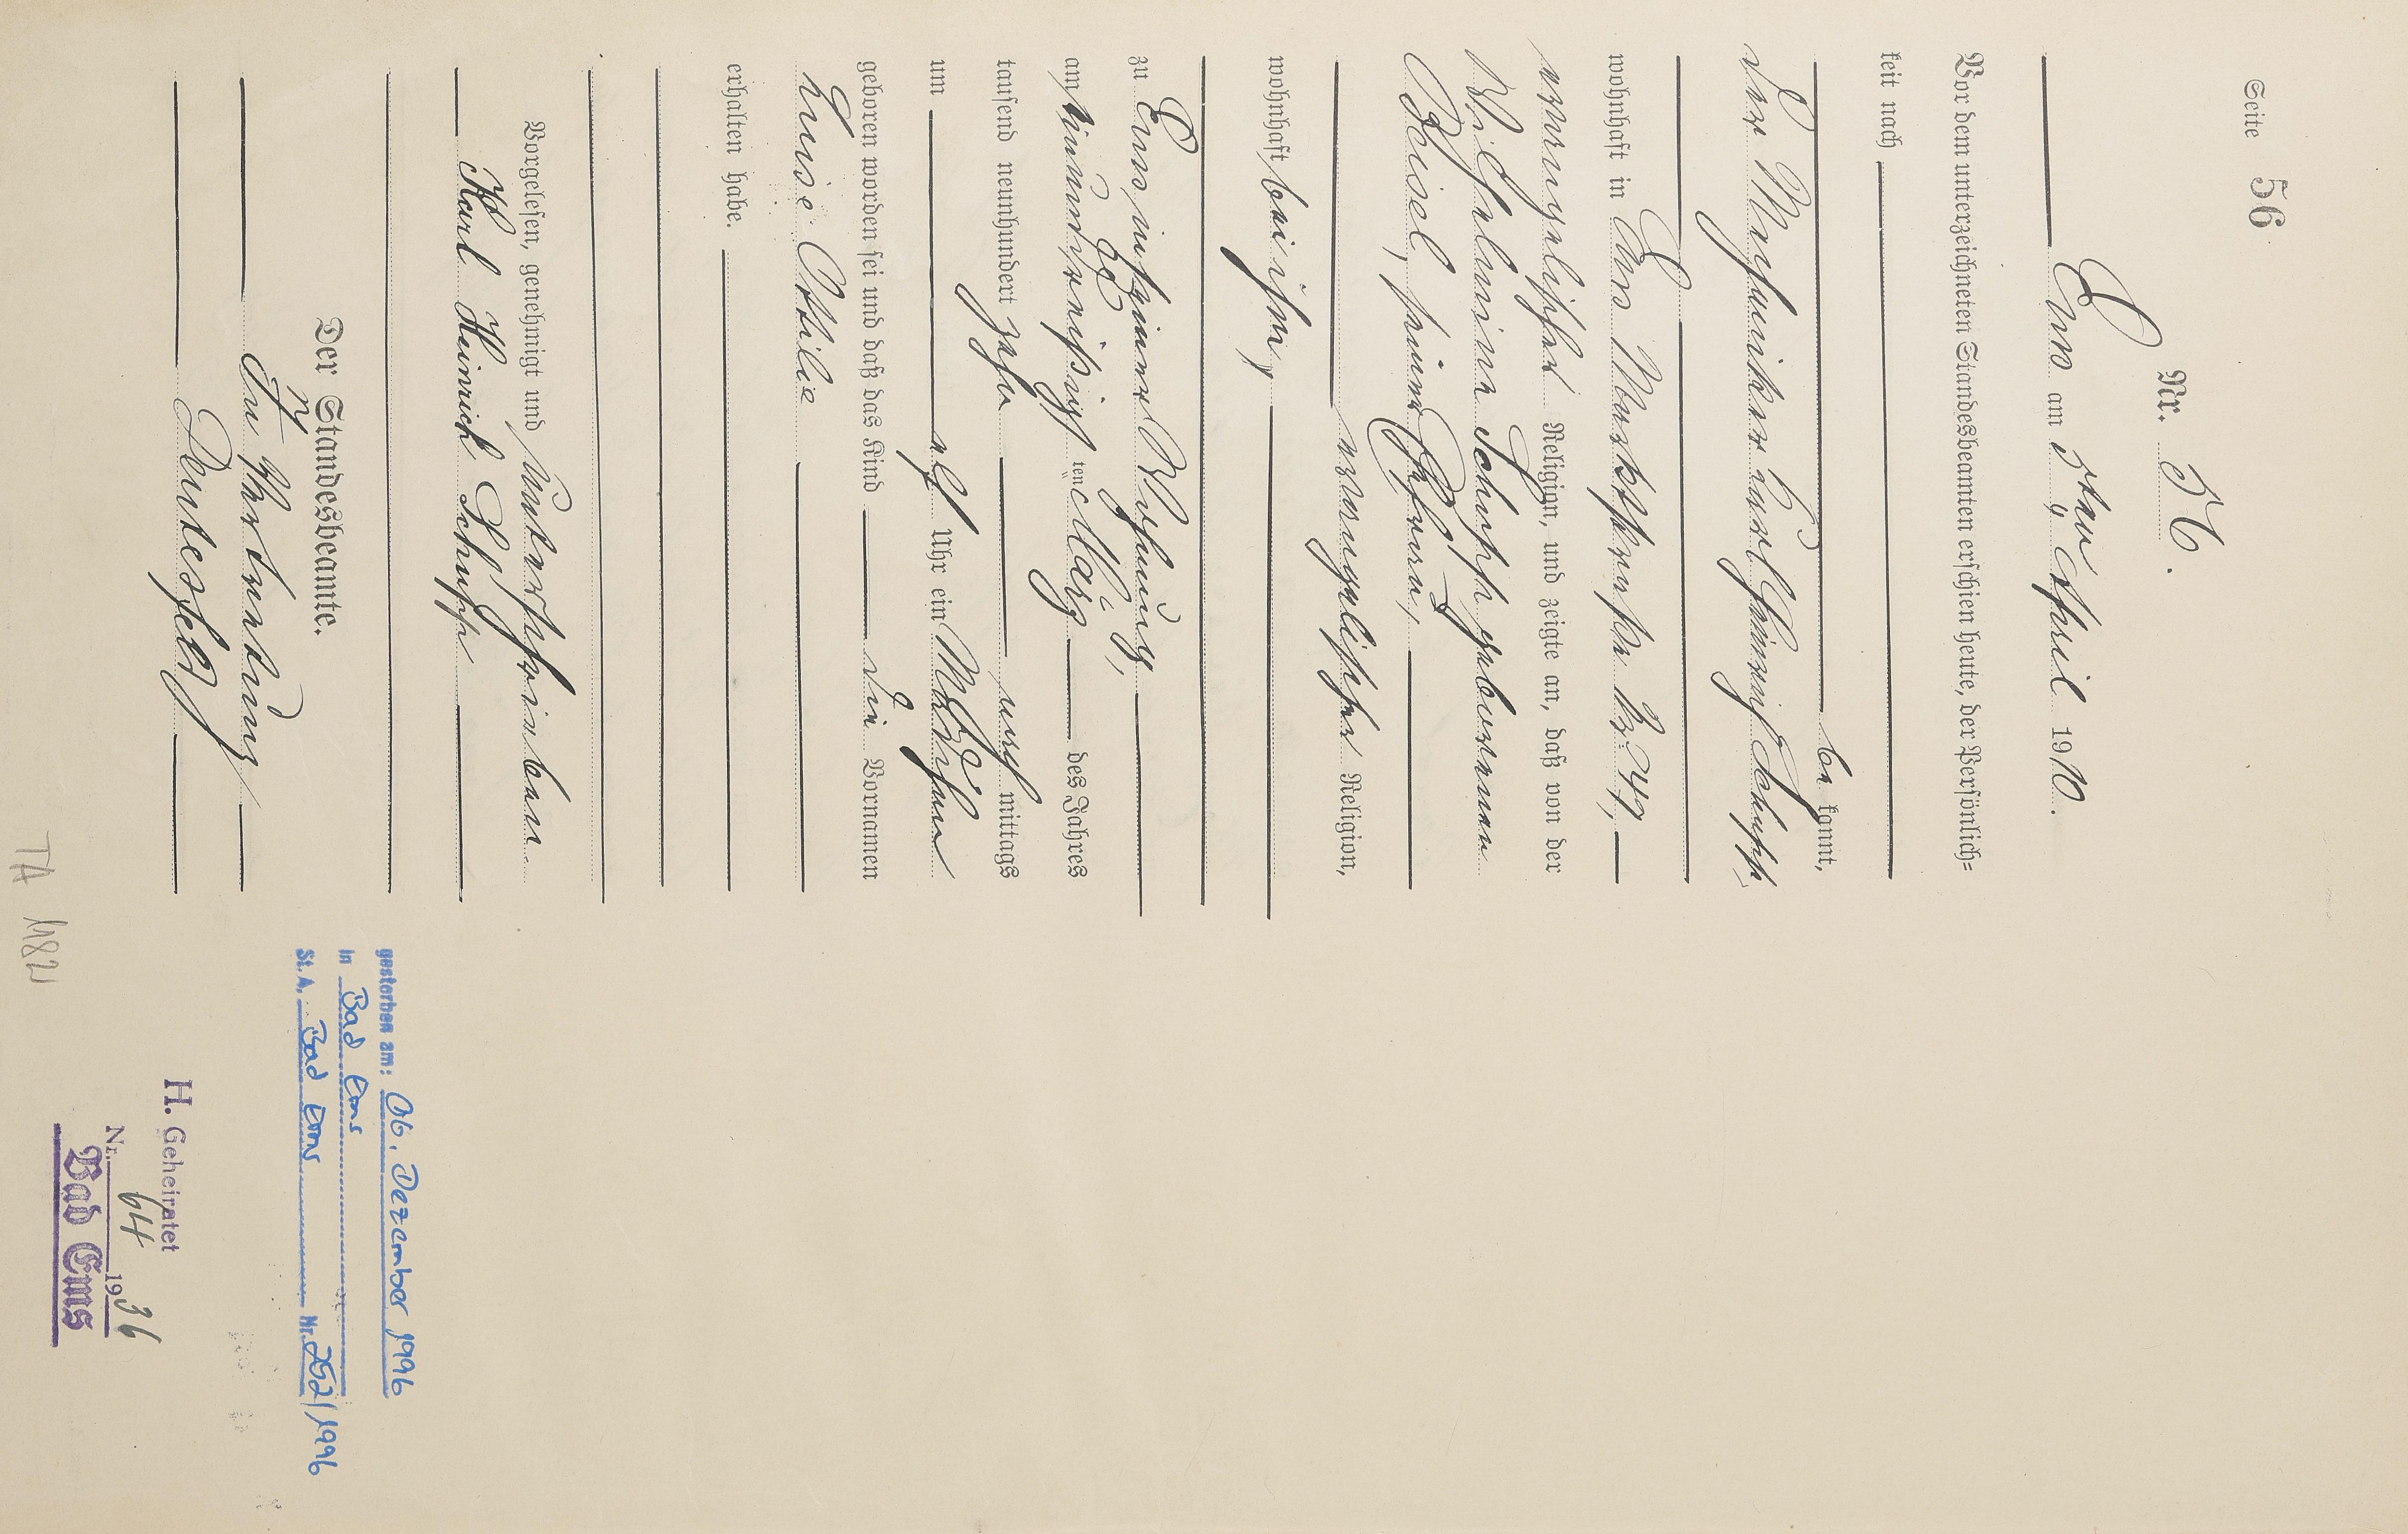 Seite 56
Nr. 56.
Ems am 5ten April 1910.
Vor dem unterzeichneten Standesbeamten erschien heute, der Persönlich=
keit nach
be kannt,
der Mechaniker Karl Heinrich Schupp,
wohnhaft in Ems Marktstraße Nr. 49,
evangelischer Religion, und zeigte an, daß von der
Wilhelmine Schupp geborenen
Beisel, seiner Ehefrau,
evangelischer Religion,
wohnhaft bei ihm,
zu Ems in seiner Wohnung,
am einunddreißigsten März des Jahres
tausend neunhundert zehn nach mittags
um elf Uhr ein Mädchen
geboren worden sei und daß das Kind die Vornamen
Luise Ottilie
erhalten habe.
Vorgelesen, genehmigt und unterschrieben
Karl Heinrich Schupp
Der Standesbeamte.
In Vertretung
gestorben am: 06. Dezember 1996
in Bad Ems
St. A. Bad Ems Nr. 252/1996
H. Geheiratet
Nr. 64 1936
Bad Ems
TA 1821